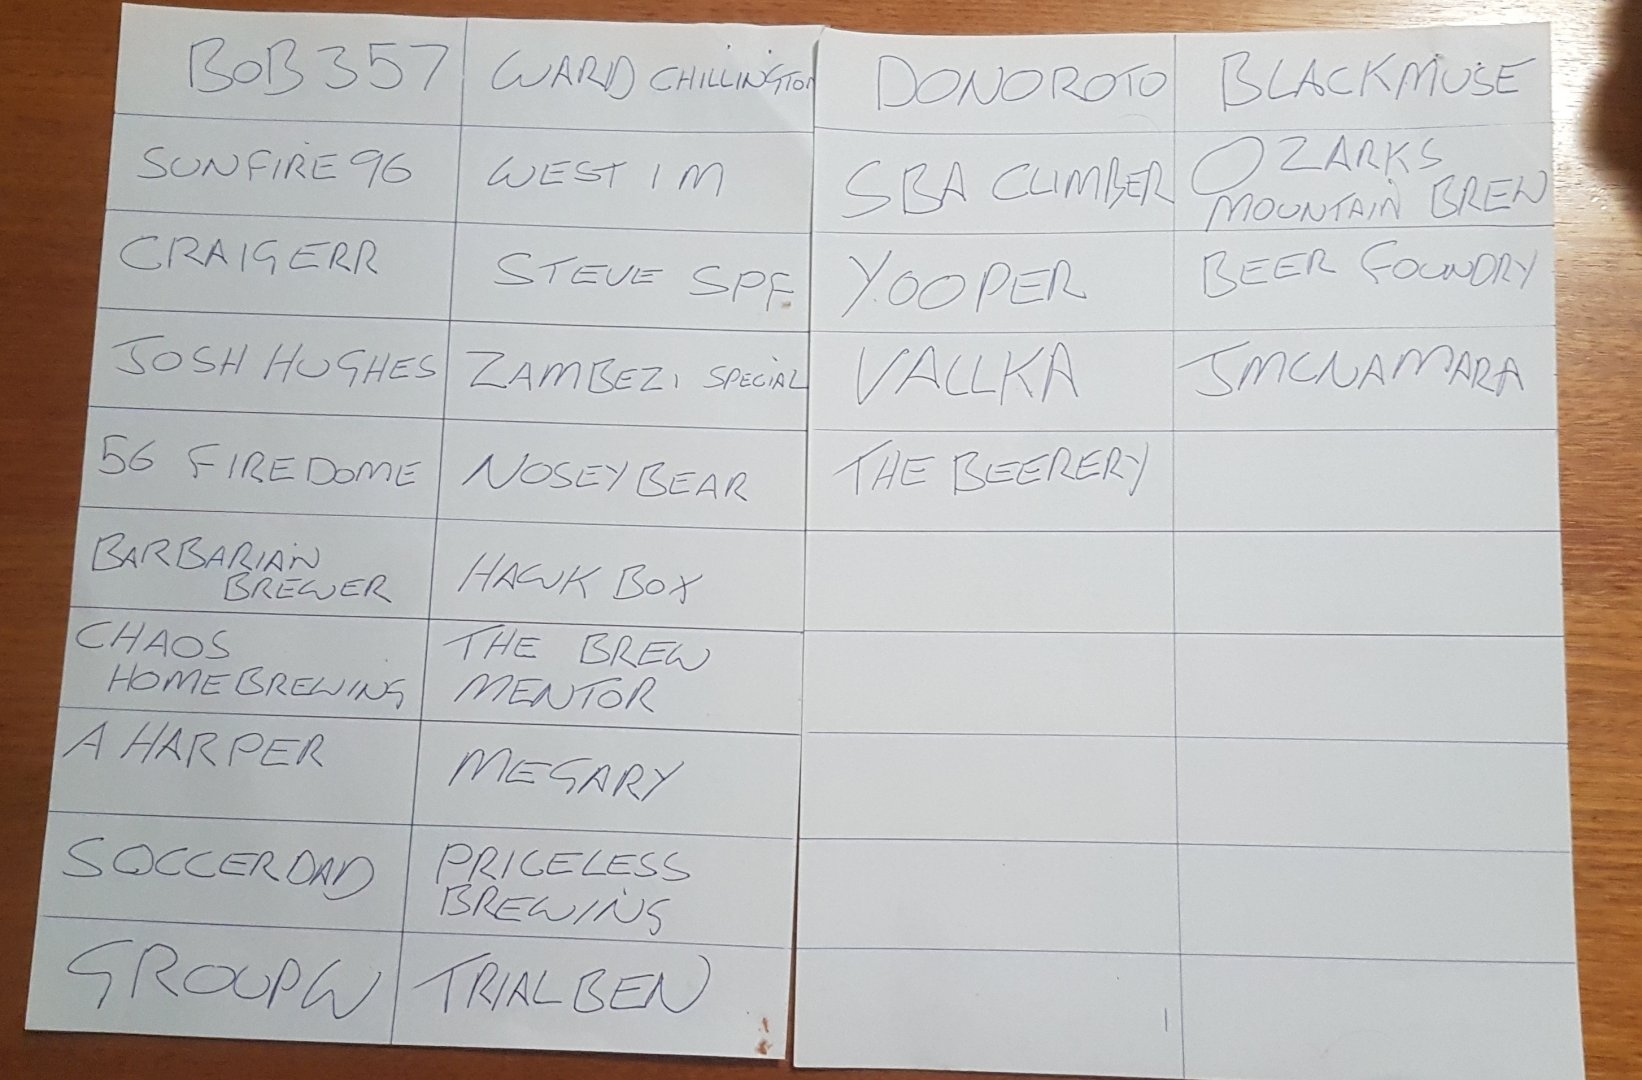 BOB357
WARD CHILLINGTON
DONOROTO
BLACKMUSE
SUNFIRE 96
WEST 1 M
SBA CLIMBER
OZARKS
MOUNTAIN BREW
CRAIGERR
STEVE SPF
YOOPER
BEER FOUNDRY
JOSH HUGHES
ZAMBEZI SPECIAL
VALLKA
JMCNAMARA
56 FIREDOME
NOSEY BEAR
THE BEERERY
BARBARIAN
BREWER
HAWK BOX
CHAOS
HOMEBREWING
THE BREW
MENTOR
A HARPER
MEGARY
SOCCERDAD
PRICELESS
BREWING
GROUPW
TRIALBEN